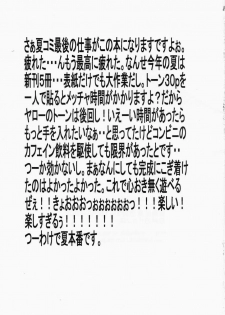 さぁ夏コミ最後の仕事がこの本になりますですよぉ。
疲れた・・・んもう最高に疲れた。なんせ今年の夏は
新刊5冊・・・表紙だけでも大作業だし。トーン30pを
一人で貼るとメッチャ時間がかかりますよ？だから
ヤローのトーンは後回し！いえーい時間があったら
もっと手を入れたいなぁ～と思ってたけどコンビニの
カフェイン飲料を駆使しても限界があったとです・・
つーか効かないし。まぁなんにしても完成にこぎ着け
たのはよかったよかった。これで心おき無く遊べる
ぜぇ！！きょおおおっぉぉぉぉぉっ！！！楽しい！
楽しすぎるぅ！！！！！！！
つーわけで夏本番です。